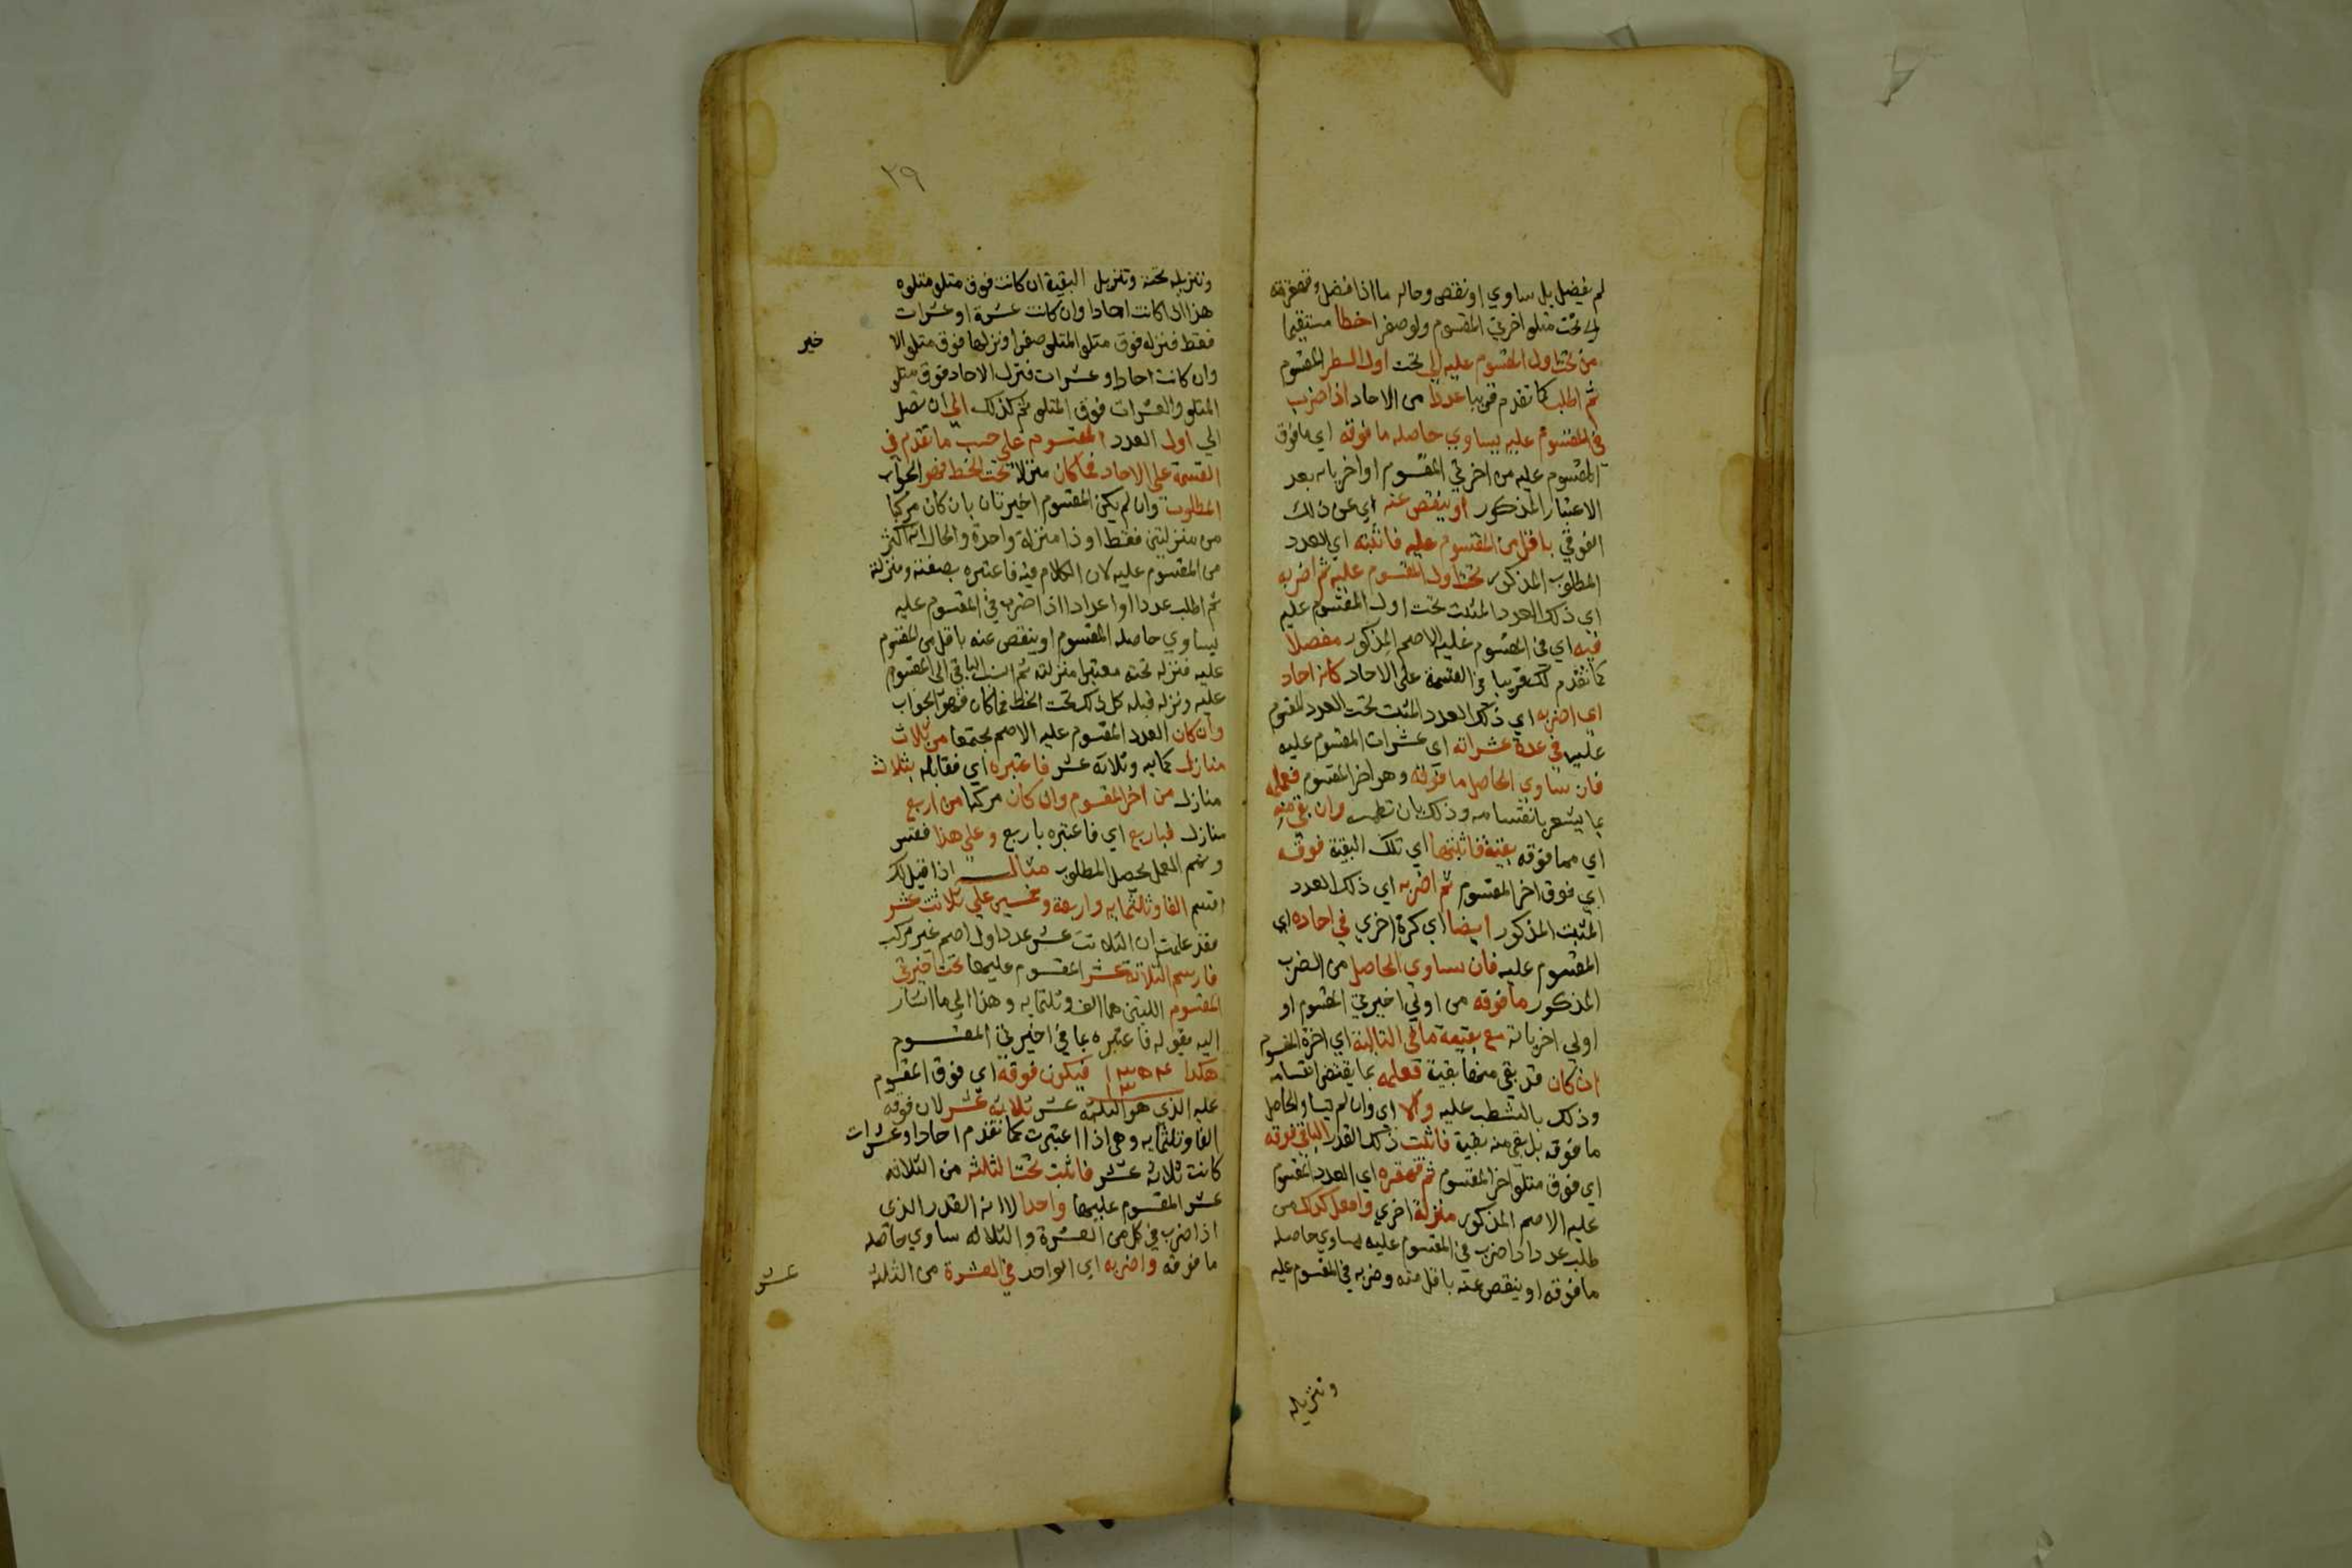 لم يفضل بل ساوي او نقص وحاله ما اذا فضل فقهقره
الي تحت متلو اخريتي المقسوم ولو صفرا خطا مستقيما
من تحت اول المقسوم عليه الي تحت اول السطر المقسوم
ثم اطلب كما تقدم قريبا عددا من الاحاد اذا ضرب
في المقسوم عليه يساوي حاصله ما فوقه اي ما فوق
المقسوم عليه من اخريتي المقسوم او اخرياته بعد
الاعتبار المذكور او ينقص عنه اي عن ذلك
الفوقي باقل من المقسوم عليه فاثبته اي العدد
المطلوب المذكور تحت اول المقسوم عليه ثم اضربه
اي ذلك العدد المثبت تحت اول المقسوم عليه
فيه اي في المقسوم عليه الاصم المذكور مفصلا
كما تقدم لك قريبا في القسمة علي الاحاد كانه احاد
اي اضربه اي ذلك العدد المثبت تحت العدد المقسوم
عليه في عدة عشراته اي عشرات المقسوم عليه
فان ساوي الحاصل ما فوقه وهو اخر المقسوم فعلمه
بما يشعر بانقسامه وذلك بان تطمسه وان بقي منه
اي مما فوقه بقية فاثبتها اي تلك البقية فوقه
اي فوق اخر المقسوم ثم اضربه اي ذلك العدد
المثبت المذكور ايضا اي كرة اخري في احاده اي
المقسوم عليه فان ساوي الحاصل من الضرب
المذكور ما فوقه من اولي اخيرتي المقسوم او
اولي اخرياته مع بقيمة ما في التالية اي اخرة المقسوم
ان كان قد بقي منها بقية فعلمه بما يقتضي انقسامه
وذلك بالشطب عليه والا اي وان لم يساو الحاصل
ما فوقه بل بقي منه بقية فاثبت ذلك القدر الباقي فوقه
اي فوق متلو اخر المقسوم ثم قهقره اي العدد المقسوم
عليه الاصم المذكور منزلة اخري وافعل كذلك من
طلب عدد اذا ضرب في المقسوم عليه يساوي حاصله
ما فوقه او ينقص عنه باقل منه وضربه في المقسوم عليه
وتنزيله
٢٩
وتنزيله تحته وتنزيل البقية ان كانت فوق متلو متلوه
هذا اذا كانت احادا وان كانت عشرة او عشرات
فقط فنزله فوق متلو المتلو صفرا ونزلها فوق متلو الا
خير
وان كانت احادا وعشرات فنزل الاحاد فوق متلو
المتلو والعشرات فوق المتلو ثم كذلك الي ان تصل
الي اول العدد المقسوم علي حسب ما تقدم في
القسمة علي الاحاد فما كان منزلا تحت الخط فهو الجواب
المطلوب وان لم يكن المقسوم اخيرتان بان كان مركبا
من منزلتين فقط او ذا منزلة واحدة والحال انه اكثر
من المقسوم عليه لان الكلام فيه فاعتبره بصفته ومنزلته
ثم اطلب عددا او اعدادا اذا ضرب في المقسوم عليه
يساوي حاصله المقسوم او ينقص عنه باقل من المقسوم
عليه فنزله تحته معتبرا منزلته ثم انسب الباقي الي المقسوم
عليه ونزله قبله كل ذلك تحت الخط فما كان فهو الجواب
وان كان العدد المقسوم عليه الاصم مجتمعا من ثلاث
منازل كمايه وثلاثة عشر فاعتبره اي فقابله بثلاث
منازل من اخر المقسوم وان كان مركبا من اربع
منازل فباربع اي فاعتبره باربع وعلي هذا فقس
وتمم العمل يحصل المطلوب مثال اذا قيل لك
اقسم الفا وثلثمايه واربعة وخمسين علي ثلاثت عشر
فقد علمت ان الثلاثت عشر عدد اول اصم غير مركب
فارسم الثلاثة عشر المقسوم عليها تحت اخيرتي
المقسوم اللتين هما الف وثلثمايه وهذا الي ما اشار
اليه بقوله فاعتبره بما في اخيرتي المقسوم
هكذا ١٣٥٤ فيكون فوقه اي فوق المقسوم
١٣
عليه الذي هو الثلثة عشر ثلاثة عشر لان فوقه
الفا وثلثمايه وهي اذا اعتبرت كما تقدم احادا وعشرات
كانت ثلاثة عشر فاثبت تحت الثلثه من الثلاثه
عشر المقسوم عليها واحدا لانه القدر الذي
اذا ضرب في كل من العشرة والثلاثه ساوي حاصله
ما فوقه واضربه اي الواحد في العشرة من الثلثة
عشر